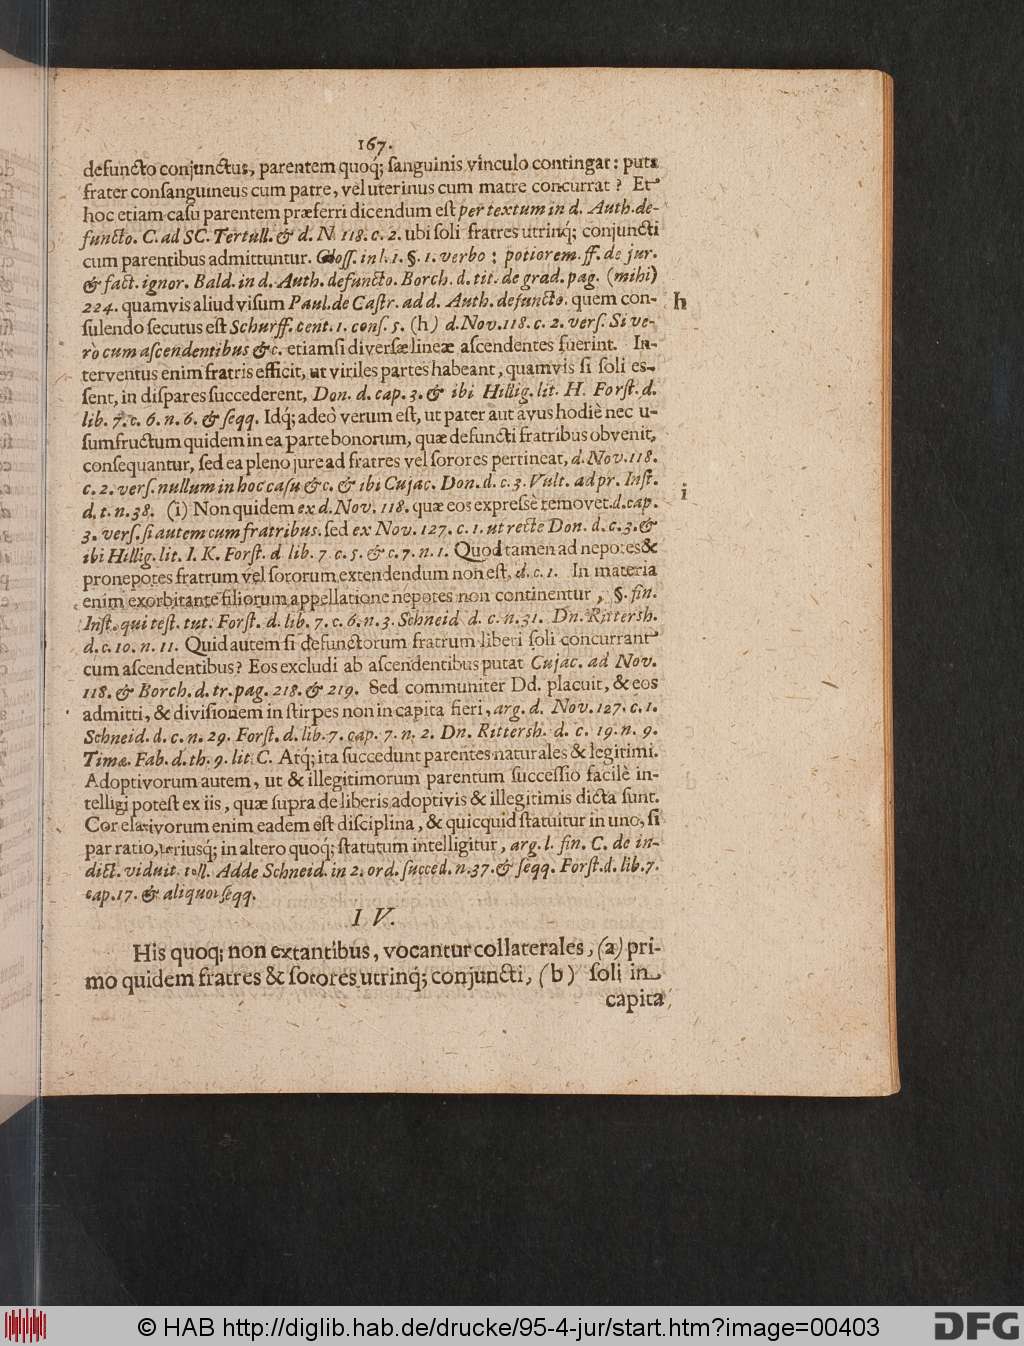 167.
defuncto conjunctus, parentem quoq́; ſanguinis vinculo contingat: puta
frater conſanguineus cum patre, vel uterinus cum matre concurrat? Et
hoc etiam caſu parentem præferri dicendum eſt per textum in d. Auth. de-
functo. C. ad SC. Tertull. & d. N. 118. c. 2. ubi ſoli fratres utrinq́; conjuncti
cum parentibus admittuntur. Gloſſ. in l. 1. §. 1. verbo: potiorem. ff. de jur.
& fact. ignor. Bald. in d. Auth. defuncto. Borch. d. tit. de grad. pag. (mihi)
224. quamvis aliud viſum Paul. de Caſtr. ad d. Auth. defuncto. quem con-
h
ſulendo ſecutus eſt Schurff. cent. 1. conſ. 5. (h) d. Nov. 118. c. 2. verſ. Si ve-
rò cum aſcendentibus &c. etiamſi diverſæ lineæ aſcendentes fuerint. In-
terventus enim fratris efficit, ut viriles partes habeant, quamvis ſi ſoli es-
ſent, in diſpares ſuccederent, Don. d. cap. 3. & ibi Hillig. lit. H. Forſt. d.
lib. 7. c. 6. n. 6. & ſeqq. Idq́; adeò verum eſt, ut pater aut avus hodiè nec u-
ſumfructum quidem in ea parte bonorum, quæ defuncti fratribus obvenit,
conſequantur, ſed ea pleno jure ad fratres vel ſorores pertineat, d. Nov. 118.
c. 2. verſ. nullum in hoc caſu &c. & ibi Cujac. Don. d. c. 3. Vult. ad pr. Inſt.
i
d. t. n. 38. (i) Non quidem ex d. Nov. 118. quæ eos expreſsè removet. d. cap.
3. verſ. ſi autem cum fratribus. ſed ex Nov. 127. c. 1. ut recte Don. d. c. 3. &
ibi Hillig. lit. I. K. Forſt. d. lib. 7. c. 5. & c. 7. n. 1. Quod tamen ad nepotes &
pronepotes fratrum vel ſororum extendendum non eſt, d. c. 1. In materia
enim exorbitante filiorum appellatione nepotes non continentur, §. fin.
Inſt. qui teſt. tut. Forſt. d. lib. 7. c. 6. n. 3. Schneid d. c. n. 31. Dn. Rittersh.
d. c. 10. n. 11. Quid autem ſi defunctorum fratrum liberi ſoli concurrant
cum aſcendentibus? Eos excludi ab aſcendentibus putat Cujac. ad Nov.
118. & Borch. d. tr. pag. 218. & 219. Sed communiter Dd. placuit, & eos
admitti, & diviſionem in ſtirpes non in capita fieri, arg. d. Nov. 127. c. 1.
Schneid. d. c. n. 29. Forſt. d. lib. 7. cap. 7. n. 2. Dn. Rittersh. d. c. 19. n. 9.
Timæ. Fab. d. th. 9. lit. C. Atq́; ita ſuccedunt parentes naturales & legitimi.
Adoptivorum autem, ut & illegitimorum parentum ſucceſſio facilè in-
telligi poteſt ex iis, quæ ſupra de liberis adoptivis & illegitimis dicta ſunt.
Correlativorum enim eadem eſt diſciplina, & quicquid ſtatuitur in uno, ſi
par ratio, utriusq́; in altero quoq́; ſtatutum intelligitur, arg. l. fin. C. de in-
dict. viduit. toll. Adde Schneid. in 2. ord. ſucced. n. 37. & ſeqq. Forſt. d. lib. 7.
cap. 17. & aliquot ſeqq.
IV.
His quoq; non extantibus, vocantur collaterales, (a) pri-
mo quidem fratres & ſorores utrinq́; conjuncti, (b) ſoli in
capita
© HAB http://diglib.hab.de/drucke/95-4-jur/start.htm?image=00403
DFG